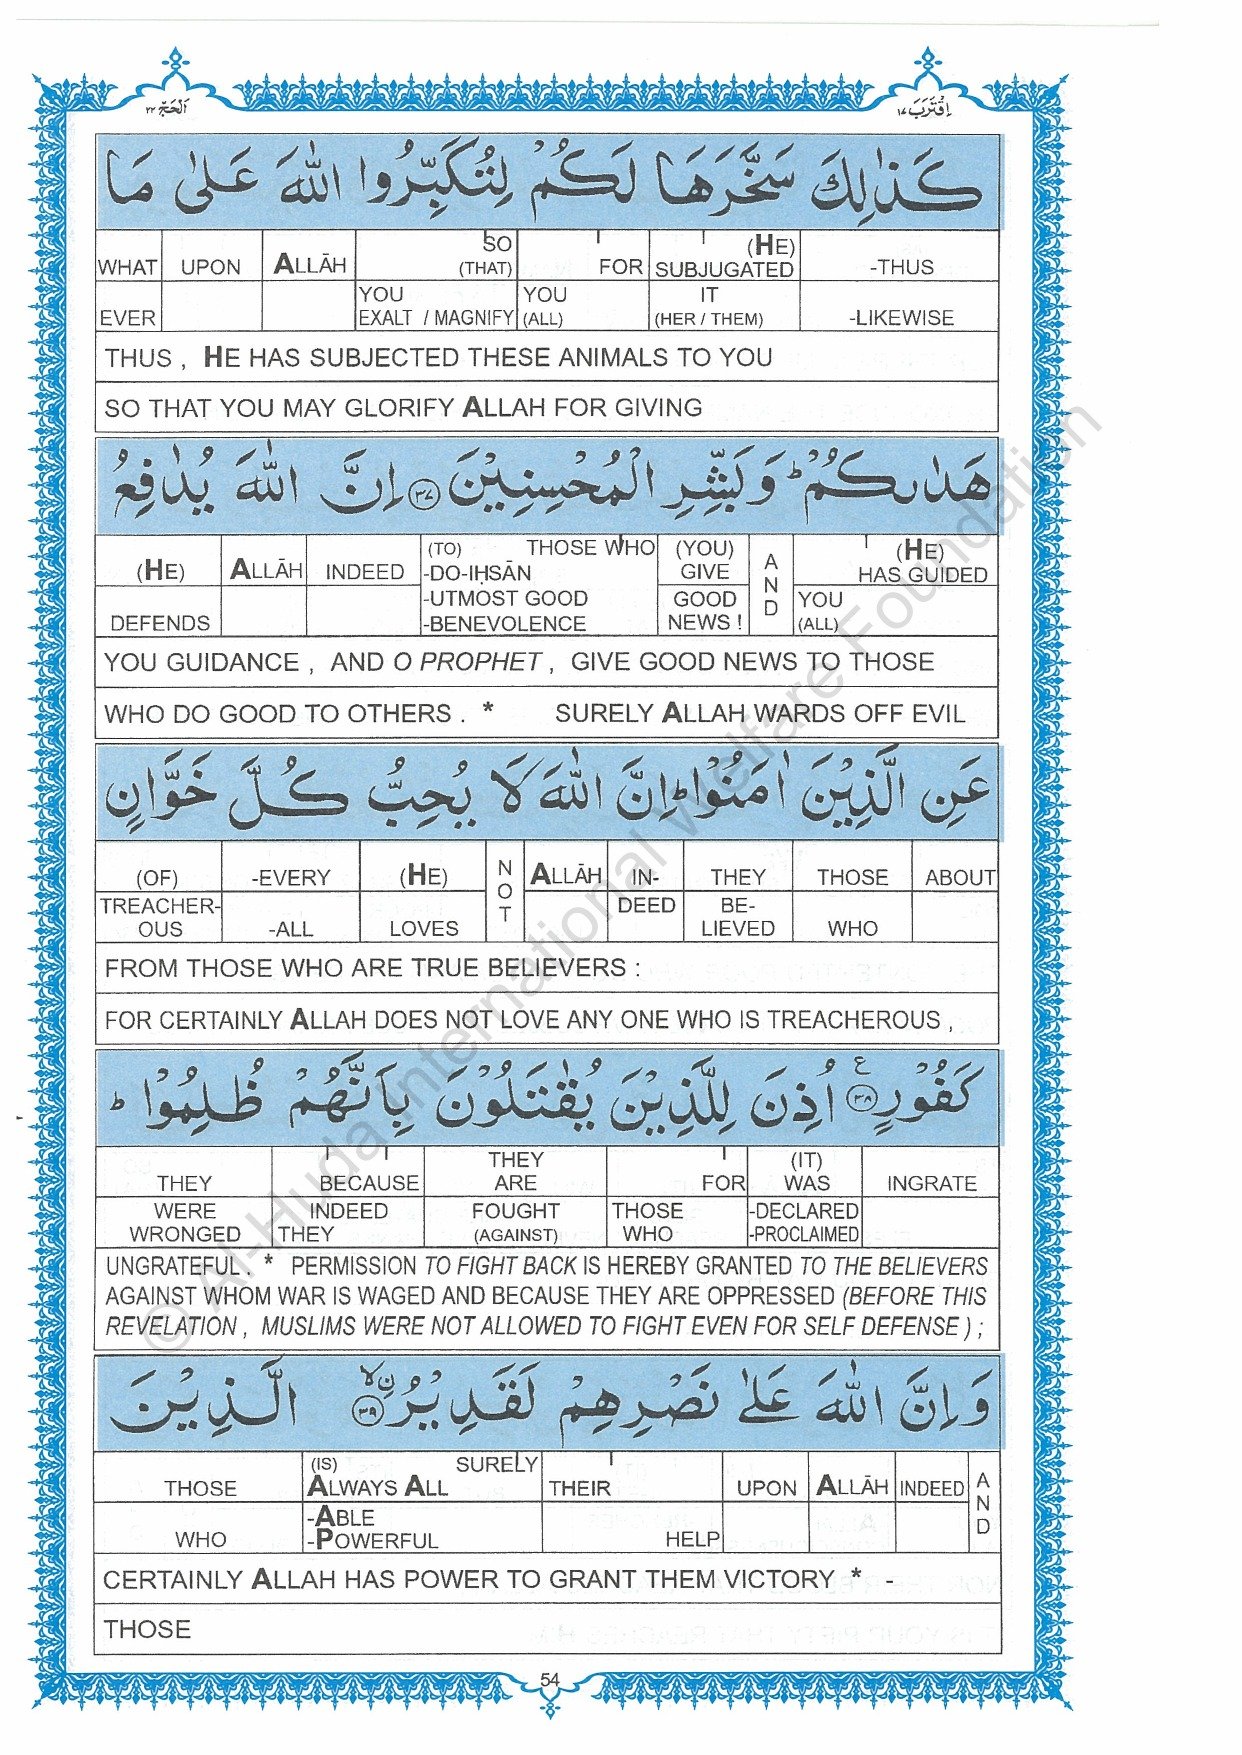 اَلْحَجّ ٢٢
اِقْتَرَبَ ١٧
كَذٰلِكَ سَخَّرَهَا لَكُمْ لِتُكَبِّرُوا اللّٰهَ عَلٰى مَا
WHAT UPON ALLĀH SO (THAT) FOR (HE) SUBJUGATED -THUS
EVER YOU EXALT / MAGNIFY YOU (ALL) IT (HER / THEM) -LIKEWISE
THUS , HE HAS SUBJECTED THESE ANIMALS TO YOU
SO THAT YOU MAY GLORIFY ALLAH FOR GIVING
هَدٰىكُمْ ؕ وَبَشِّرِ الْمُحْسِنِيْنَ ٣٧ اِنَّ اللّٰهَ يُدٰفِعُ
(HE) ALLĀH INDEED (TO) THOSE WHO -DO-IḤSĀN (YOU) GIVE AND (HE) HAS GUIDED
DEFENDS -UTMOST GOOD -BENEVOLENCE GOOD NEWS ! YOU (ALL)
YOU GUIDANCE , AND O PROPHET , GIVE GOOD NEWS TO THOSE
WHO DO GOOD TO OTHERS . * SURELY ALLAH WARDS OFF EVIL
عَنِ الَّذِيْنَ اٰمَنُوْا ؕ اِنَّ اللّٰهَ لَا يُحِبُّ كُلَّ خَوَّانٍ
(OF) -EVERY (HE) NOT ALLĀH IN- THEY THOSE ABOUT
TREACHER- OUS -ALL LOVES DEED BE- LIEVED WHO
FROM THOSE WHO ARE TRUE BELIEVERS :
FOR CERTAINLY ALLAH DOES NOT LOVE ANY ONE WHO IS TREACHEROUS ,
كَفُوْرٍ ٣٨ ع اُذِنَ لِلَّذِيْنَ يُقٰتَلُوْنَ بِاَنَّهُمْ ظُلِمُوْا ؕ
THEY BECAUSE THEY ARE FOR (IT) WAS INGRATE
WERE WRONGED INDEED THEY FOUGHT (AGAINST) THOSE WHO -DECLARED -PROCLAIMED
UNGRATEFUL . * PERMISSION TO FIGHT BACK IS HEREBY GRANTED TO THE BELIEVERS
AGAINST WHOM WAR IS WAGED AND BECAUSE THEY ARE OPPRESSED (BEFORE THIS
REVELATION , MUSLIMS WERE NOT ALLOWED TO FIGHT EVEN FOR SELF DEFENSE ) ;
وَاِنَّ اللّٰهَ عَلٰى نَصْرِهِمْ لَقَدِيْرُ ۨ ٣٩ ۙ الَّذِيْنَ
THOSE (IS) SURELY ALWAYS ALL THEIR UPON ALLĀH INDEED AND
WHO -ABLE -POWERFUL HELP
CERTAINLY ALLAH HAS POWER TO GRANT THEM VICTORY * -
THOSE
54
© Al-Huda International Welfare Foundation